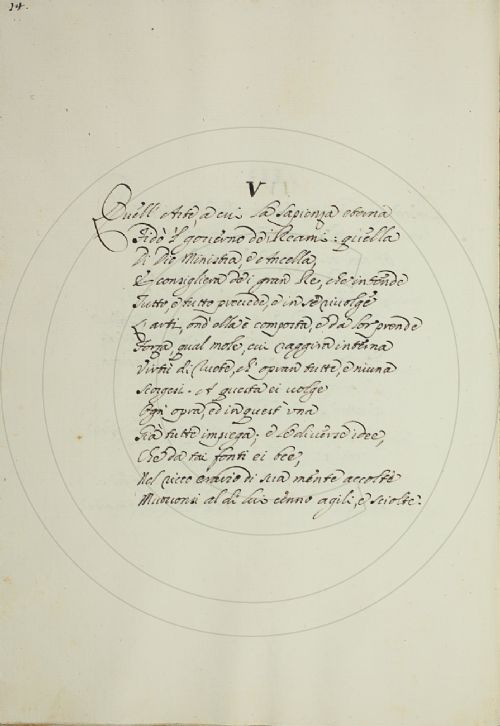 14.
V
Quell'Arte, a cui la Sapienza eterna
Fidò 'l governo dei Reami: quella
Di Dio Ministra, e Ancella,
E consigliera dei gran Re, che infonde
Tutto, e tutto prevede, e in se rivolge
L'arti, ond'ella è composta, e da lor prende
Forza, qual mole, cui raggira interna
Virtù di Ruote, ch'opran tutte, e niuna
Scorgesi. A questa ei volge
Ogn'opra, ed in quest'una
Sua tutte impiega; e le diverse idee,
Che da tai fonti ei bee,
Nel ricco erario di sua mente accolte
Muovonsi al di lui cenno agili, e sciolte.